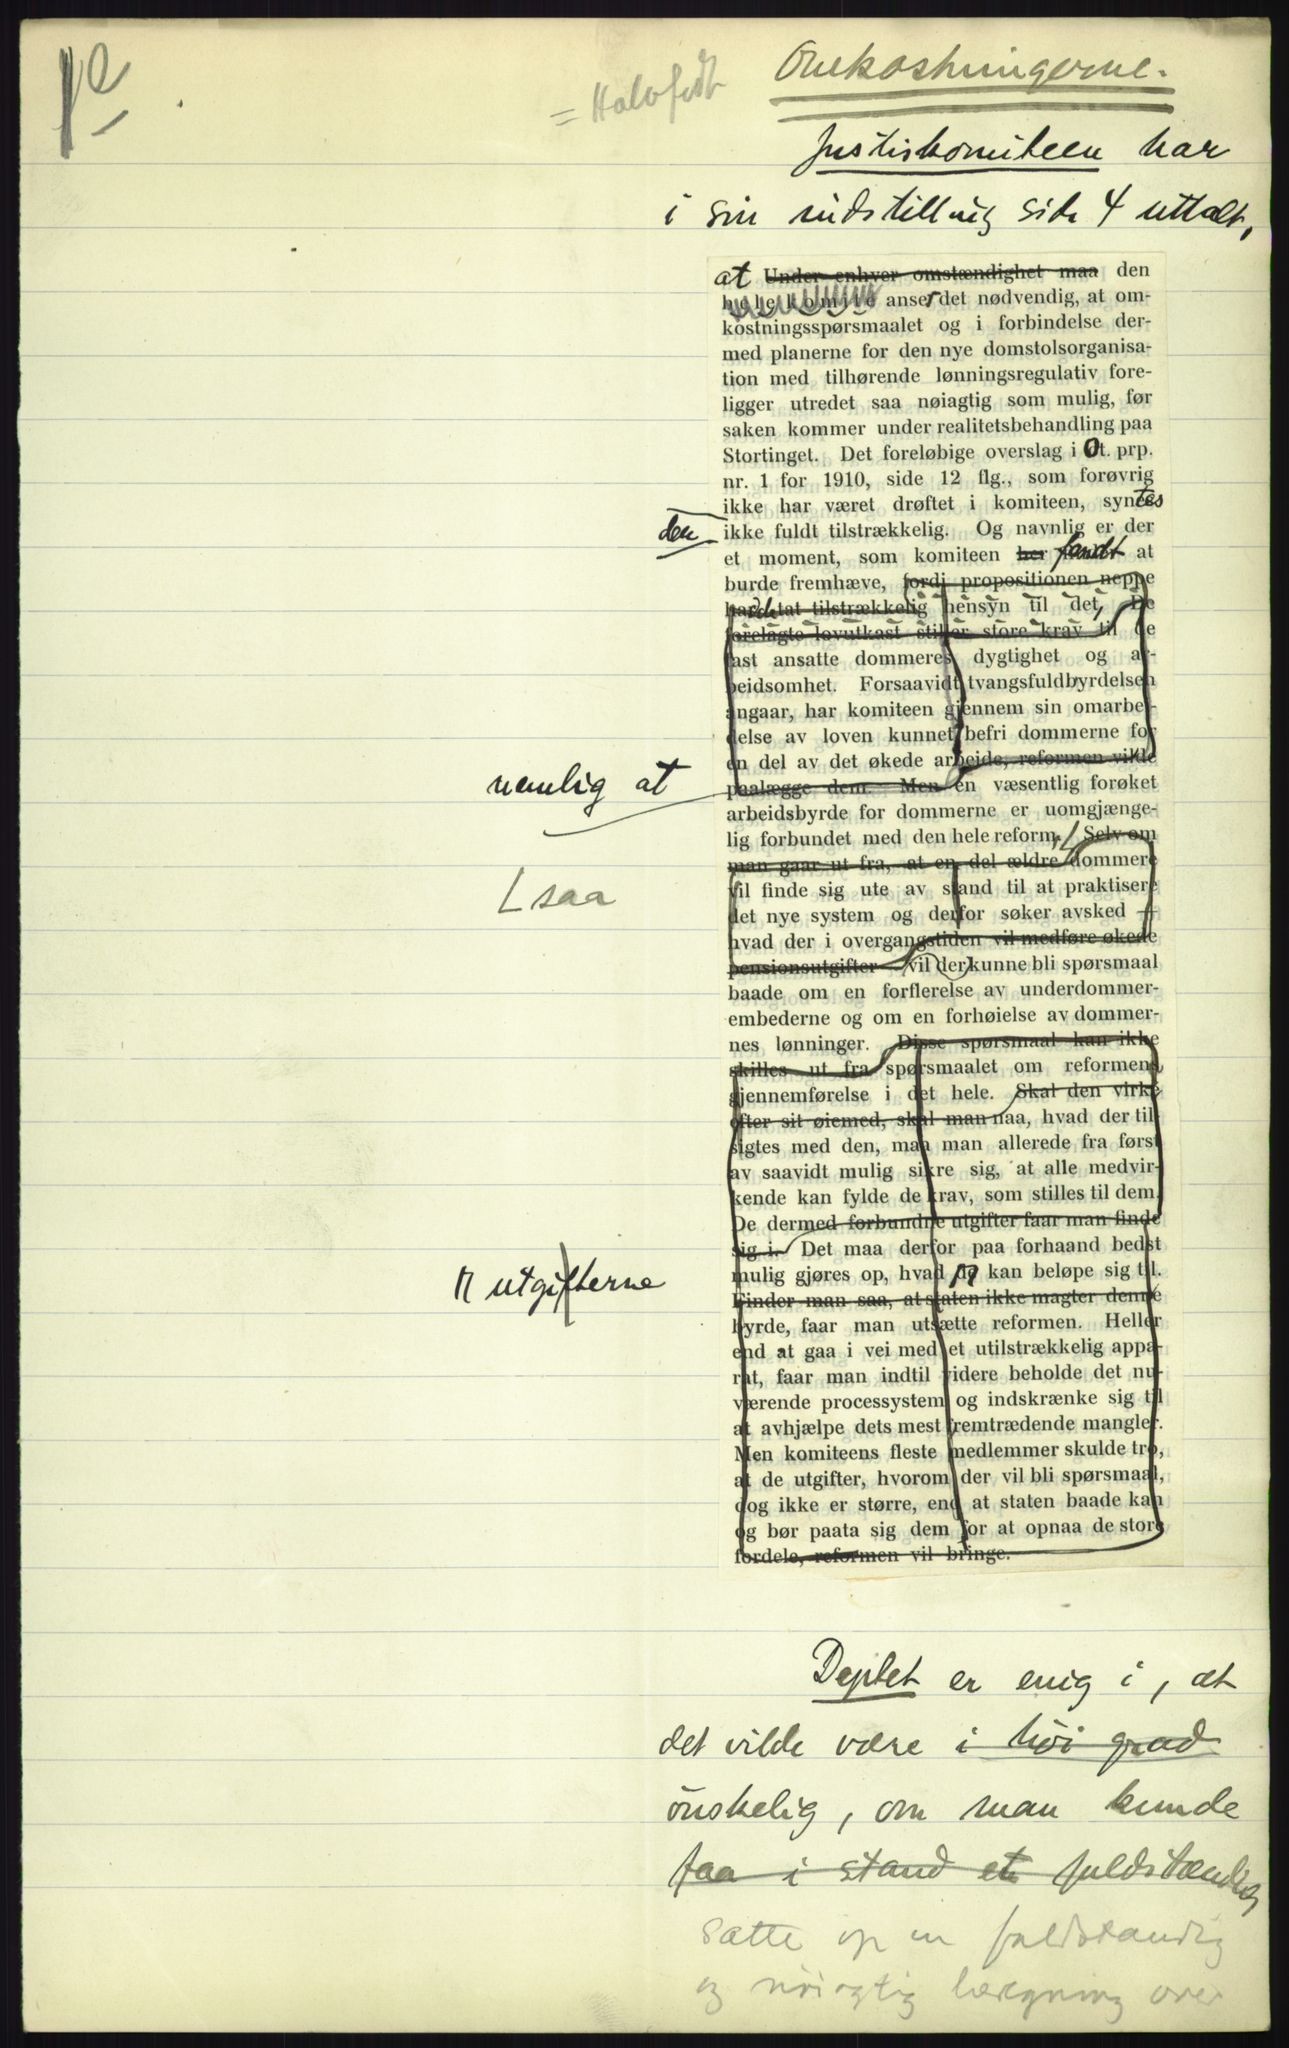 = Halvfedt
Omkostningerne.
Justiskomiteen har
i sin indstilling side 4 uttalt,
at Under enhver omstændighet maa den
hele komite anser det nødvendig, at om-
kostningsspørsmaalet og i forbindelse der-
med planerne for den nye domstolsorganisa-
tion med tilhørende lønningsregulativ fore-
ligger utredet saa nøiagtig som mulig, før
saken kommer under realitetsbehandling paa
Stortinget. Det foreløbige overslag i Ot. prp.
nr. 1 for 1910, side 12 flg., som forøvrig
ikke har været drøftet i komiteen, syntes
den ikke fuldt tilstrækkelig. Og navnlig er der
et moment, som komiteen her fandt at
burde fremhæve, fordi propositionen neppe
hadde tat tilstrækkelig hensyn til det, De
forelagte lovutkast stiller store krav til de
fast ansatte dommeres dygtighet og ar-
beidsomhet. Forsaavidt tvangsfuldbyrdelsen
angaar, har komiteen gjennem sin omarbei-
delse av loven kunnet befri dommerne for
en del av det økede arbeide, reformen vilde
nemlig at paalægge dem. Men en væsentlig forøket
arbeidsbyrde for dommerne er uomgjænge-
lig forbundet med den hele reform, Selv om
man gaar ut fra, at en del ældre dommere
saa vil finde sig ute av stand til at praktisere
det nye system og derfor søker avsked —
hvad der i overgangstiden vil medføre økede
pensionsutgifter — vil der kunne bli spørsmaal
baade om en forflerelse av underdommer-
embederne og om en forhøielse av dommer-
nes lønninger. Disse spørsmaal kan ikke
skilles ut fra spørsmaalet om reformens
gjennemførelse i det hele. Skal den virke
efter sit øiemed, skal man naa, hvad der til-
sigtes med den, maa man allerede fra først
av saavidt mulig sikre sig, at alle medvir-
kende kan fylde de krav, som stilles til dem.
De dermed forbundne utgifter faar man finde
sig i. Det maa derfor paa forhaand bedst
utgifterne mulig gjøres op, hvad de kan beløpe sig til.
Finder man saa, at staten ikke magter denne
byrde, faar man utsætte reformen. Heller
end at gaa i vei med et utilstrækkelig appa-
rat, faar man indtil videre beholde det nu-
værende processystem og indskrænke sig til
at avhjælpe dets mest fremtrædende mangler.
Men komiteens fleste medlemmer skulde tro,
at de utgifter, hvorom der vil bli spørsmaal,
dog ikke er større, end at staten baade kan
og bør paata sig dem for at opnaa de store
fordele, reformen vil bringe.
Deptet er enig i, at
det vilde være i høi grad
ønskelig, om man kunde
faa i stand en fuldstændig
sætte op en fuldstændig
og nøiagtig beregning over